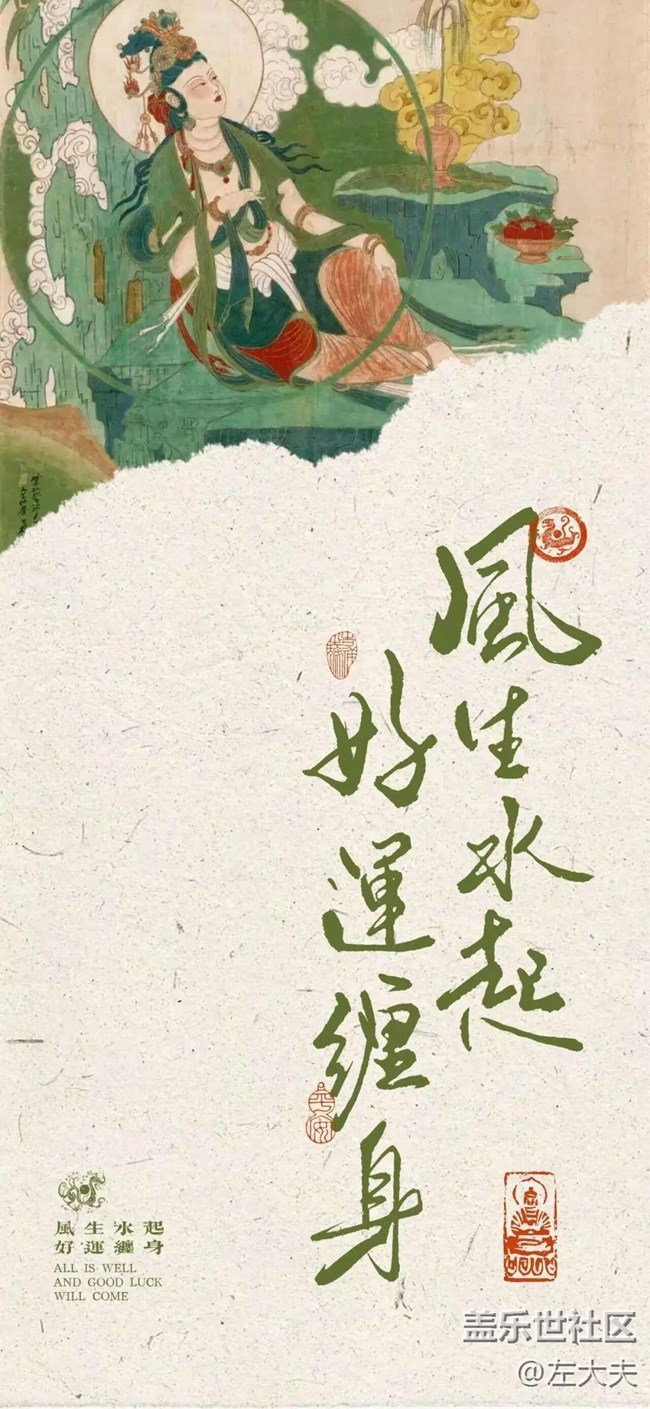 風生水起
好運纏身
平安
風生水起
好運纏身
ALL IS WELL
AND GOOD LUCK
WILL COME
盖乐世社区
@左大夫